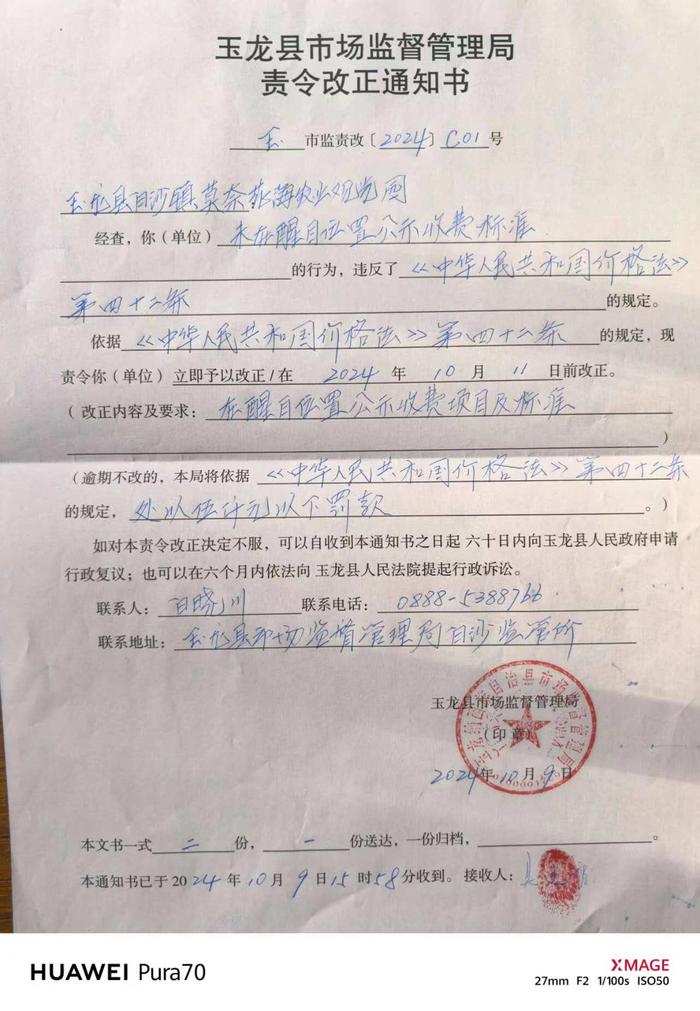 玉龙县市场监督管理局
责令改正通知书
玉 市监责改〔2024〕C01号
玉龙县白沙镇莫奈花海农业观光园
经查，你（单位）未在醒目位置公示收费标准
的行为，违反了《中华人民共和国价格法》
第四十二条 的规定。
依据《中华人民共和国价格法》第四十二条 的规定，现
责令你（单位）立即予以改正/在 2024 年 10 月 11 日前改正。
（改正内容及要求：在醒目位置公示收费项目及标准
）
（逾期不改的，本局将依据《中华人民共和国价格法》第四十二条
的规定，处以伍仟元以下罚款 。）
如对本责令改正决定不服，可以自收到本通知书之日起 六十日内向玉龙县人民政府申请
行政复议；也可以在六个月内依法向 玉龙县人民法院提起行政诉讼。
联系人：白晓川 联系电话：0888-5388766
联系地址：玉龙县市场监督管理局白沙监管所
玉龙县市场监督管理局
（印章）
2024年10月9日
本文书一式 二 份，一 份送达，一份归档， 。
本通知书已于2024年10月9日15时58分收到。 接收人：
HUAWEI Pura70
XMAGE
27mm F2 1/100s ISO50